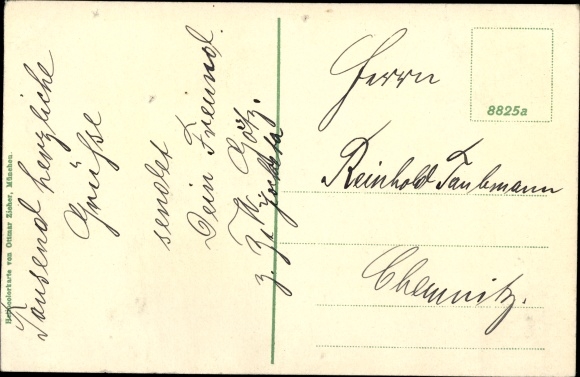 Tausend herzliche
Grüsse
sendet
Dein Freund
z. Z. Götz.
Herrn
Reinhold Taubmann
Chemnitz.
8825a
Heliocolorkarte von Ottmar Zieher, München.